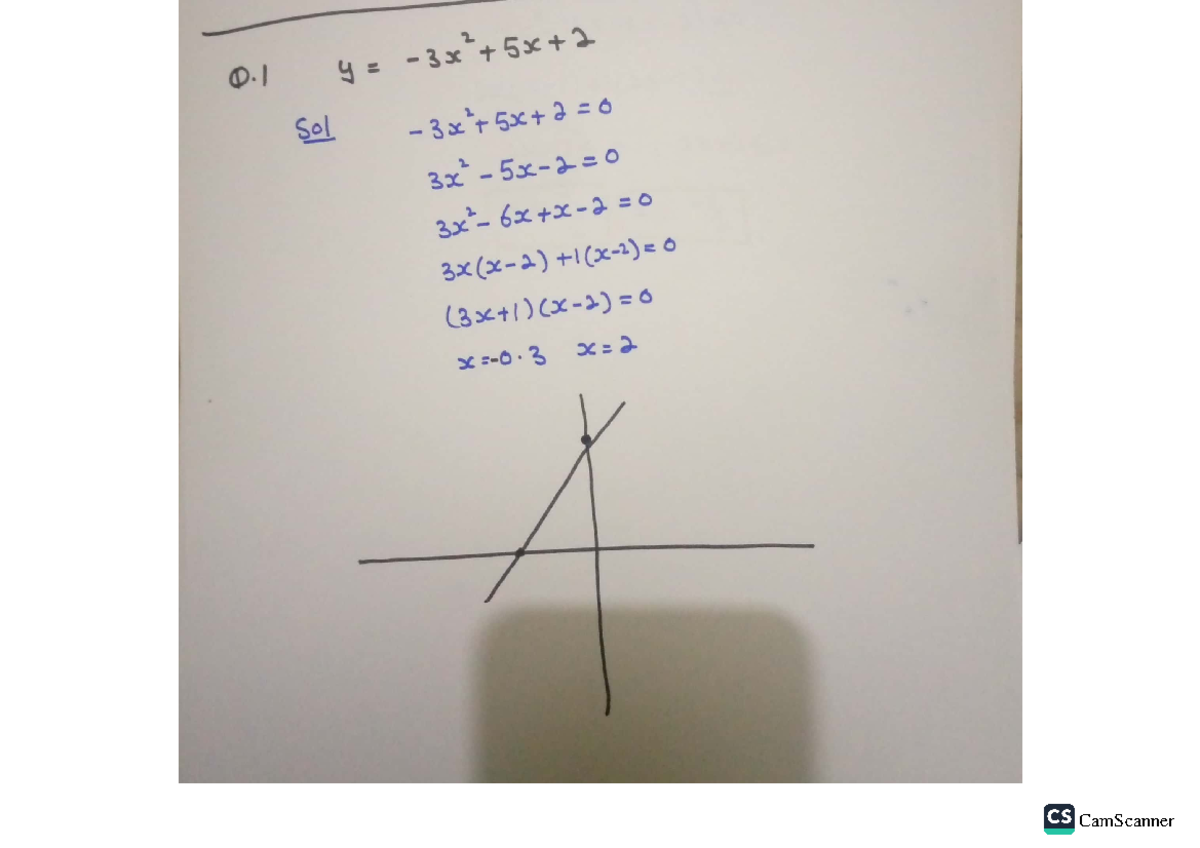 Q.1 y = -3x² + 5x + 2
Sol -3x² + 5x + 2 = 0
3x² - 5x - 2 = 0
3x² - 6x + x - 2 = 0
3x(x-2) + 1(x-2) = 0
(3x+1)(x-2) = 0
x = -0.3 x = 2
CS CamScanner